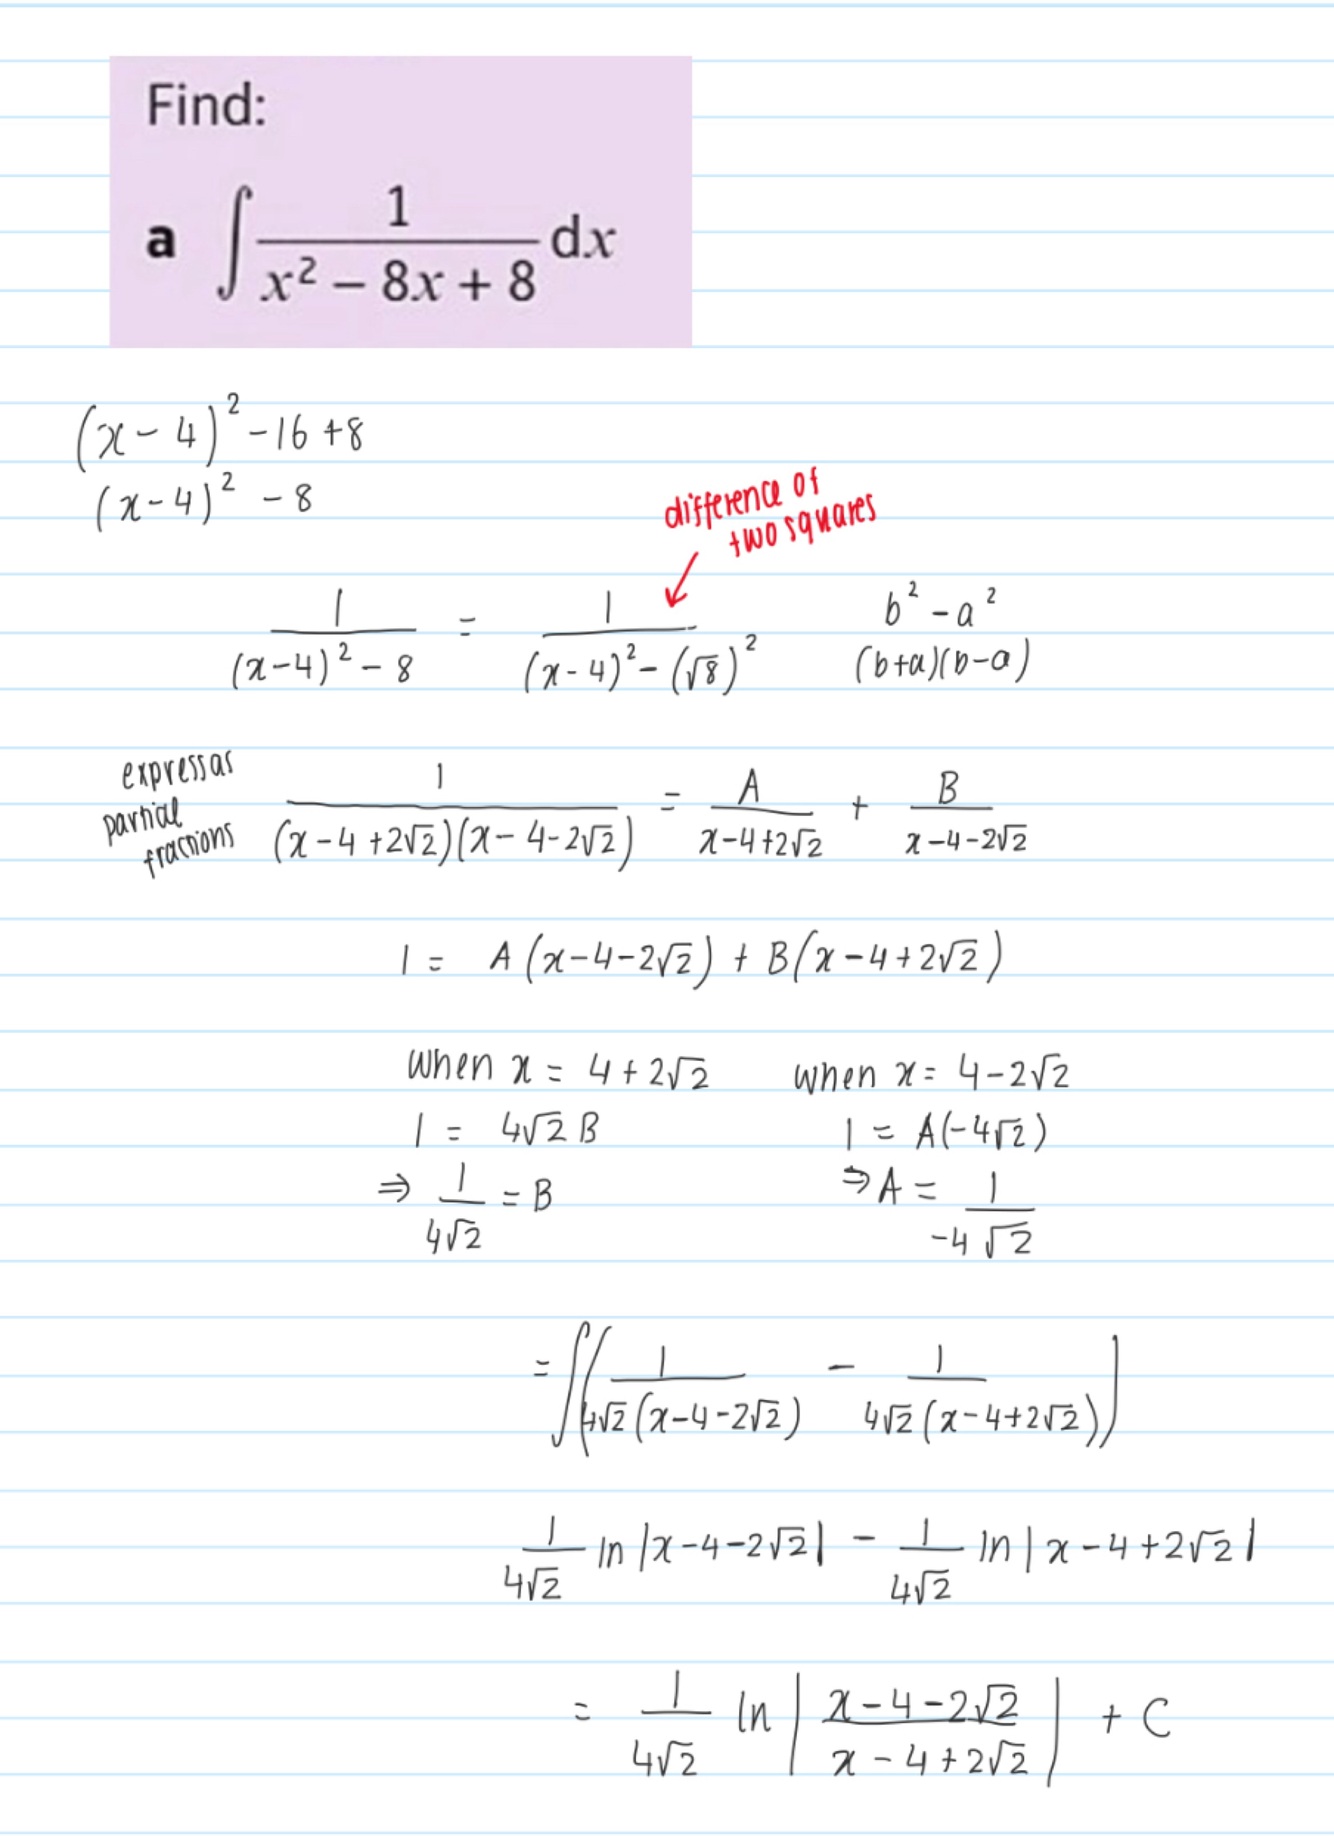 Find:
a ∫ 1/(x² − 8x + 8) dx
(x − 4)² − 16 + 8
(x − 4)² − 8
difference of
two squares
1/((x−4)² − 8) = 1/((x−4)² − (√8)²)
b² − a²
(b+a)(b−a)
express as
partial
fractions
1/((x−4+2√2)(x−4−2√2)) = A/(x−4+2√2) + B/(x−4−2√2)
1 = A(x−4−2√2) + B(x−4+2√2)
when x = 4 + 2√2
1 = 4√2 B
⇒ 1/(4√2) = B
when x = 4 − 2√2
1 = A(−4√2)
⇒ A = 1/(−4√2)
= ∫(1/(4√2(x−4−2√2)) − 1/(4√2(x−4+2√2)))
1/(4√2) ln|x−4−2√2| − 1/(4√2) ln|x−4+2√2|
= 1/(4√2) ln|(x−4−2√2)/(x−4+2√2)| + C